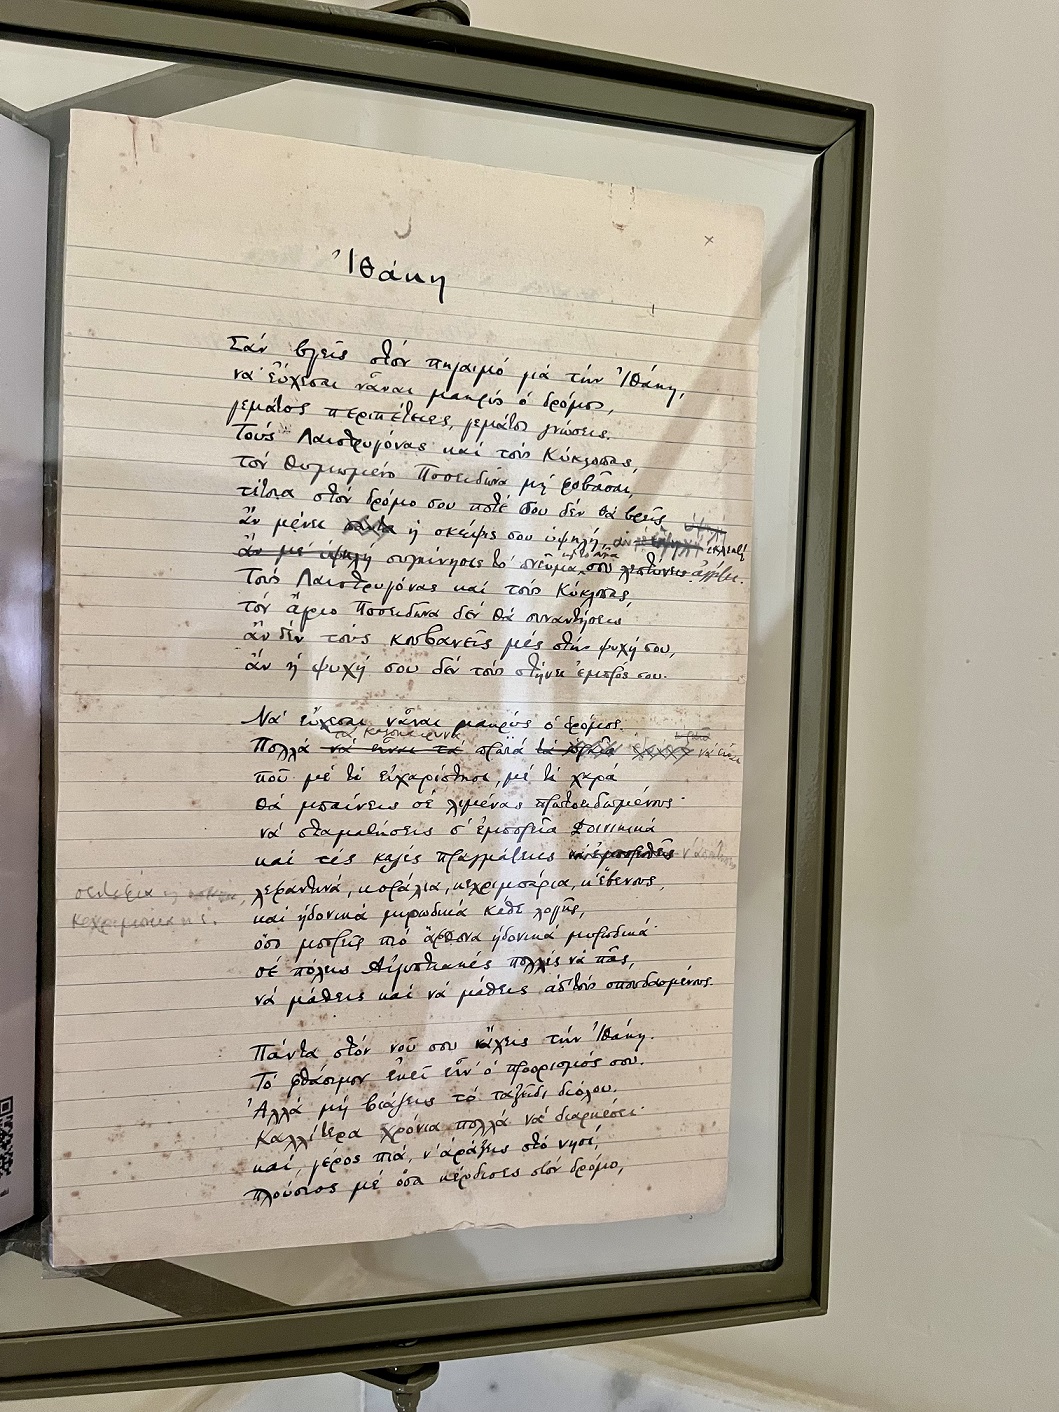 Ἰθάκη
Σάν βγεῖς στόν πηγαιμό γιά τήν Ἰθάκη,
νά εὔχεσαι νἆναι μακρύς ὁ δρόμος,
γεμάτος περιπέτειες, γεμάτος γνώσεις.
Τούς Λαιστρυγόνας καί τούς Κύκλωπας,
τόν θυμωμένο Ποσειδῶνα μή φοβᾶσαι,
τέτοια στόν δρόμο σου ποτέ σου δέν θά βρεῖς
ἄν μένει ἡ σκέψις σου ὑψηλή, ἄν ἐκλεκτή
συγκίνησις τό πνεῦμα ἀγγίζει.
Τούς Λαιστρυγόνας καί τούς Κύκλωπας,
τόν ἄγριο Ποσειδῶνα δέν θά συναντήσεις
ἄν δέν τούς κουβανεῖς μές στήν ψυχή σου,
ἄν ἡ ψυχή σου δέν τούς στήνει ἐμπρός σου.
Νά εὔχεσαι νἆναι μακρύς ὁ δρόμος.
τά καλοκαιρινά
Πολλά νά εἶναι τά πρωϊά νά εἶναι
πού μέ τί εὐχαρίστησι, μέ τί χαρά
θά μπαίνεις σέ λιμένας πρωτοειδωμένους·
νά σταματήσεις σ' ἐμπορεῖα Φοινικικά
καί τές καλές πραγμάτειες ν' ἀποκτήσεις
κεχριμπάρια κ' ἔ.
καί ἡδονικά μυρωδικά κάθε λογῆς,
ὅσο μπορεῖς πιό ἄφθονα ἡδονικά μυρωδικά·
σέ πόλεις Αἰγυπτιακές πολλές νά πᾶς,
νά μάθεις καί νά μάθεις ἀπ' τούς σπουδασμένους.
Πάντα στόν νοῦ σου νἄχεις τήν Ἰθάκη.
Τό φθάσιμον ἐκεῖ εἶν' ὁ προορισμός σου.
Ἀλλά μή βιάζεις τό ταξεῖδι διόλου.
Καλλίτερα χρόνια πολλά νά διαρκέσει·
καί, γέρος πιά, ν' ἀράξεις στό νησί,
πλούσιος μέ ὅσα κέρδισες στόν δρόμο,